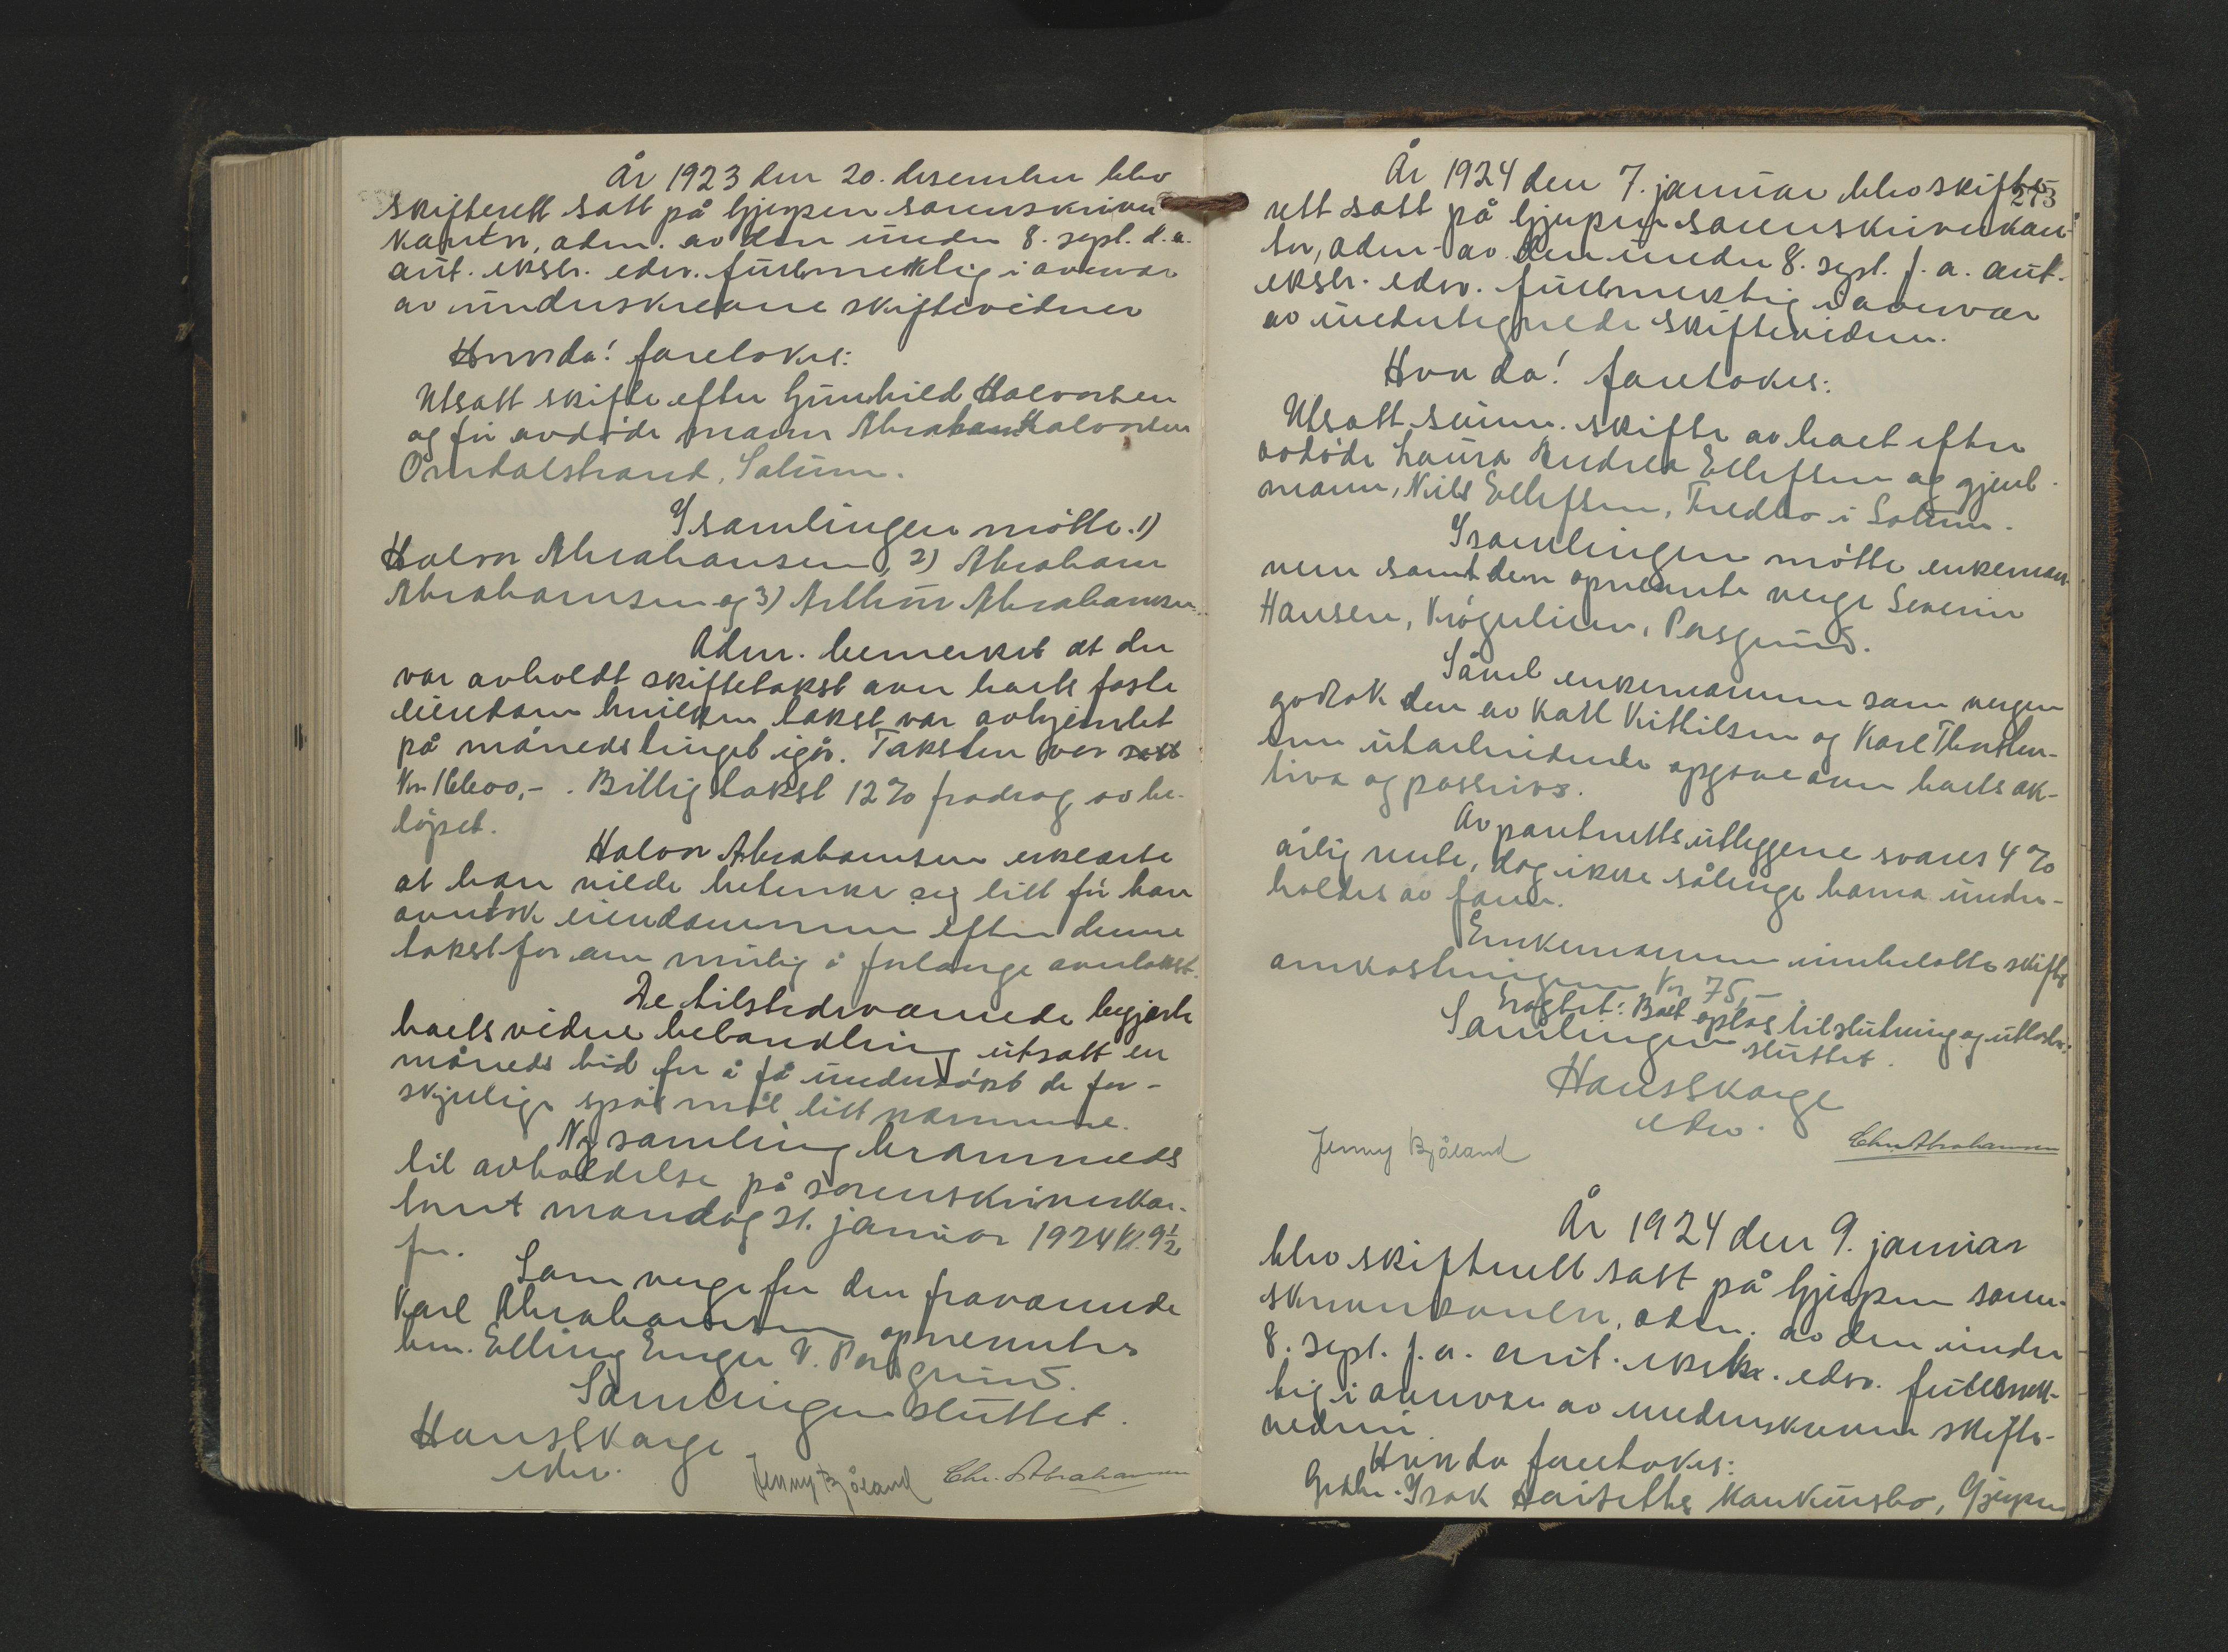 År 1923 den 20. desember blev
skifterett satt på Gjerpen sorenskriver
kontor, adm. av den under 8. sept. d.a.
aut. ekstr. edsv. fullmektig i overvær
av underskrevne skiftevidner
Hvorda! foretokes:
Utsatt skifte efter Gunhild Halvorsen
og før avdöde mann Abraham Halvorsen
Omdalstrand, Solum.
I samlingen mötte 1)
Halvor Abrahamsen, 2) Abraham
Abrahamsen og 3) Arthur Abrahamsen.
Adm. bemerket at der
var avholdt skiftetakst over boets faste
eiendom hvilken takst var avhjemlet
på månedstinget igår. Taksten var satt
Kr. 16600,-. Billig takst 12% fradrag av be-
löpet.
Halvor Abrahamsen erklærte
at han vilde betenke sig litt før han
overtok eiendommen efter denne
takst for om mulig å forlange overtakst.
De tilstedeværende begjærte
boets videre behandling utsatt en
måneds tid for å få undersökt de for-
skjellige spörsmål litt nærmere.
Ny samling berammedes
til avholdelse på sorenskriverkon-
toret mandag 21. januar 1924 kl. 9½
fm.
Som verge for den fraværende
Karl Abrahamsen opnevntes
hm. Elling Enger V. Porsgrund.
Samlingen sluttet.
Hans Skarge
edsv.
Jenny Bjåland Chr. Abrahamsen
273
År 1924 den 7. januar blev skifte-
rett satt på Gjerpen sorenskriverkon-
tor, adm. av den under 8. sept. f.a. aut.
ekstr. edsv. fullmektig i overvær
av undertegnede skiftevidner.
Hvorda! foretokes:
Utsatt summ. skifte av boet efter
avdöde Laura Andrea Ellefsen og gjenl.
mann, Nils Ellefsen, Fredbo i Solum.
I samlingen mötte enkeman-
nen samt den opnevnte verge Severin
Hansen, Krógulien, Porsgrund.
Såvel enkemannen som vergen
godtok den av Karl Kittilsen og Karl Thorsten-
sen utarbeidede opgave over boets ak-
tiva og passiva.
Av pantrettsutleggene svares 4%
årlig rente, dog ikke sålenge barna under-
holdes av faren.
Enkemannen innbetalte skifte
omkostningene Kr. 75,-
Eragtet: Boet optas til slutning og utlodn.
Samlingen sluttet.
Hans Skarge
edsv.
Jenny Bjåland Chr. Abrahamsen
År 1924 den 9. januar
blev skifterett satt på Gjerpen soren-
skriverkontor, adm. av den under
8. sept. f.a. aut. ekstr. edsv. fullmek-
tig i overvær av underskrevne skifte-
vedner.
Hvorda foretokes:
Grdbr. Isak konkursbo, Gjerpen